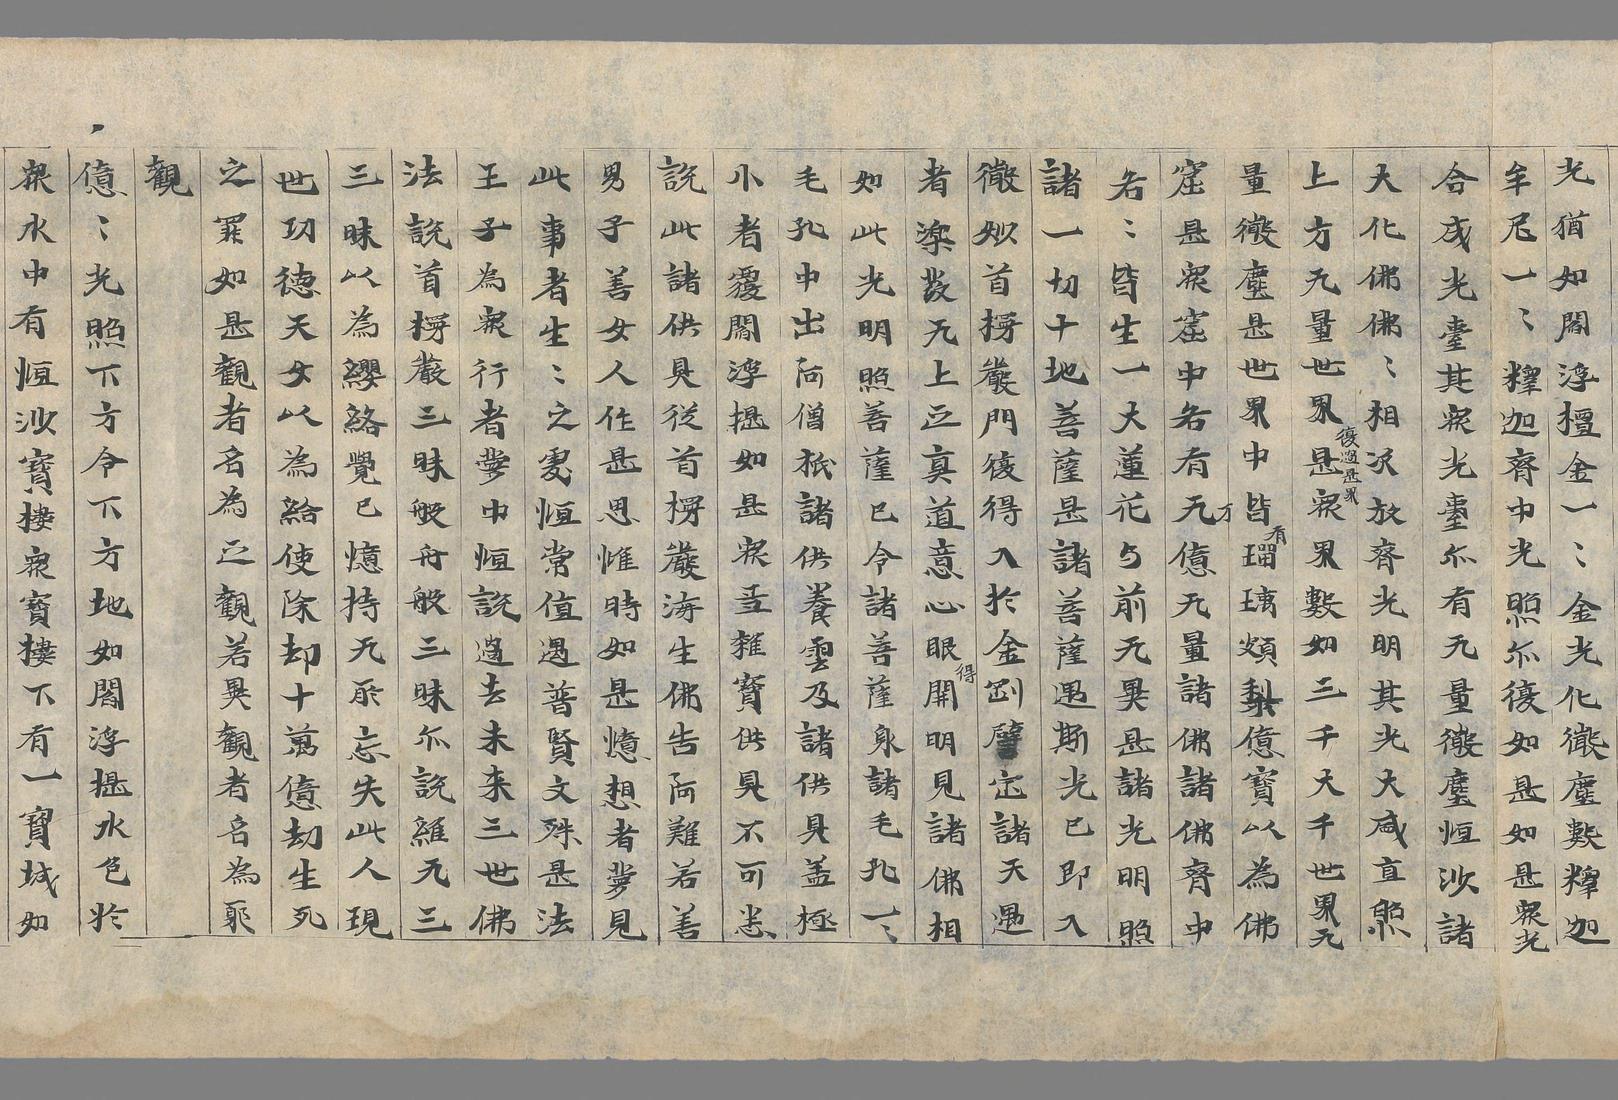 光猶如閻浮檀金一〻金光化微塵數釋迦
牟尼一〻釋迦齊中光照亦復如是如是衆光
合成光臺其衆光臺亦有无量微塵恒沙諸
大化佛佛〻相次放齊光明其光大咸直照
上方无量世界復過是界是衆界數如三千大千世界无
量微塵是世界中皆有瑠璃頗梨億寶以為佛
窟是衆窟中各有无万億无量諸佛諸佛齊中
各〻皆生一大蓮花与前无異是諸光明照
諸一切十地菩薩是諸菩薩遇斯光已即入
微妙首楞嚴門復得入於金剛譬定諸天遇
者深發无上正真道意心眼得開明見諸佛相
如此光明照菩薩已令諸菩薩身諸毛孔一〻
毛孔中出阿僧祇諸供養雲及諸供具盖極
小者覆閻浮提如是衆寶雜寶供具不可悉
說此諸供具從首楞嚴海生佛告阿難若善
男子善女人作是思惟時如是憶想者夢見
此事者生〻之處恒常值遇普賢文殊是法
王子為衆行者夢中恒說過去未来三世佛
法說首楞嚴三昧般舟般三昧亦說維无三
三昧以為纓絡覺已憶持无所忘失此人現
世功德天女以為給使除却十萬億劫生死
之罪如是觀者名為正觀若異觀者名為耶
觀
億〻光照下方令下方地如閻浮提水色於
衆水中有恒沙寶樓衆寶樓下有一寶城如